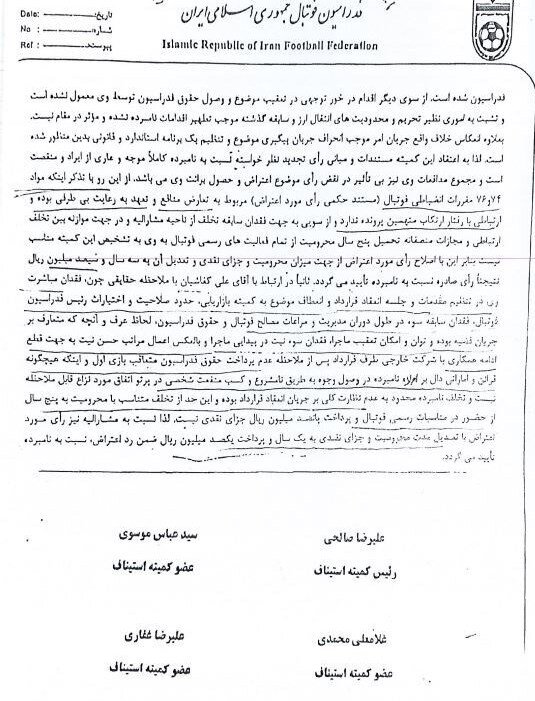 فدراسیون فوتبال جمهوری اسلامی ایران
Islamic Republic of Iran Football Federation
Date: تاریخ:
No : شماره:
Ref : پیوست:
فدراسیون شده است. از سوی دیگر اقدام در خور توجهی در تعقیب موضوع و وصول حقوق فدراسیون توسط وی معمول نشده است
و تشبث به اموری نظیر تحریم و محدودیت های انتقال ارز و سابقه گذشته موجب تطهیر اقدامات نامبرده نشده و مؤثر در مقام نیست.
بعلاوه انعکاس خلاف واقع جریان امر موجب انحراف جریان پیگیری موضوع و تنظیم یک برنامه استاندارد و قانونی بدین منظور شده
است. لذا به اعتقاد این کمیته مستندات و مبانی رأی تجدید نظر خواسته نسبت به نامبرده کاملاً موجه و عاری از ایراد و منقصت
است و مجموع مدافعات وی نیز بی تأثیر در نقض رأی موضوع اعتراض و حصول برائت وی می باشد. از این رو با تذکر اینکه مواد
۷۶و۷۴ مقررات انضباطی فوتبال (مستند حکمی رأی مورد اعتراض) مربوط به تعارض منافع و تعهد به رعایت بی طرفی بوده و
ارتباطی با رفتار ارتکاب متهمین پرونده ندارد و از سویی به جهت فقدان سابقه تخلف از ناحیه مشارالیه و در جهت موازنه بین تخلف
ارتباطی و مجازات منصفانه تحمیل پنج سال محرومیت از تمام فعالیت های رسمی فوتبال به وی به تشخیص این کمیته مناسب
نیست بنابر این با اصلاح رأی مورد اعتراض از جهت میزان محرومیت و جزای نقدی و تعدیل آن به سه سال و سیصد میلیون ریال
نتیجتاً رأی صادره نسبت به نامبرده تأیید می گردد. ثانیاً در ارتباط با آقای علی کفاشیان با ملاحظه حقایقی چون، فقدان مباشرت
وی در تنظیم مقدمات و جلسه انعقاد قرارداد و انعطاف موضوع به کمیته بازاریابی، حدود صلاحیت و اختیارات رئیس فدراسیون
فوتبال، فقدان سابقه سوء در طول دوران مدیریت و مراعات مصالح فوتبال و حقوق فدراسیون، لحاظ عرف و آنچه که متعارف بر
جریان قضیه بوده و توان و امکان تعقیب ماجرا، فقدان سوء نیت در پیدایی ماجرا و بالعکس اعمال مراتب حسن نیت به جهت قطع
ادامه همکاری با شرکت خارجی طرف قرارداد پس از ملاحظه عدم پرداخت حقوق فدراسیون متعاقب بازی اول و اینکه هیچگونه
قرائن و اماراتی دال بر نامبرده در وصول وجوه به طریق نامشروع و کسب منفعت شخصی در پرتو اتفاق مورد نزاع قابل ملاحظه
نیست و تخلف نامبرده محدود به عدم نظارت کلی بر جریان انعقاد قرارداد بوده و این حد از تخلف متناسب با محرومیت به پنج سال
از حضور در مناسبات رسمی فوتبال و پرداخت پانصد میلیون ریال جزای نقدی نیست. لذا نسبت به مشارالیه نیز رأی مورد
اعتراض با تعدیل مدت محرومیت و جزای نقدی به یک سال و پرداخت یکصد میلیون ریال ضمن رد اعتراض، نسبت به نامبرده
تأیید می گردد.
علیرضا صالحی سید عباس موسوی
رئیس کمیته استیناف عضو کمیته استیناف
غلامعلی محمدی علیرضا غفاری
عضو کمیته استیناف عضو کمیته استیناف